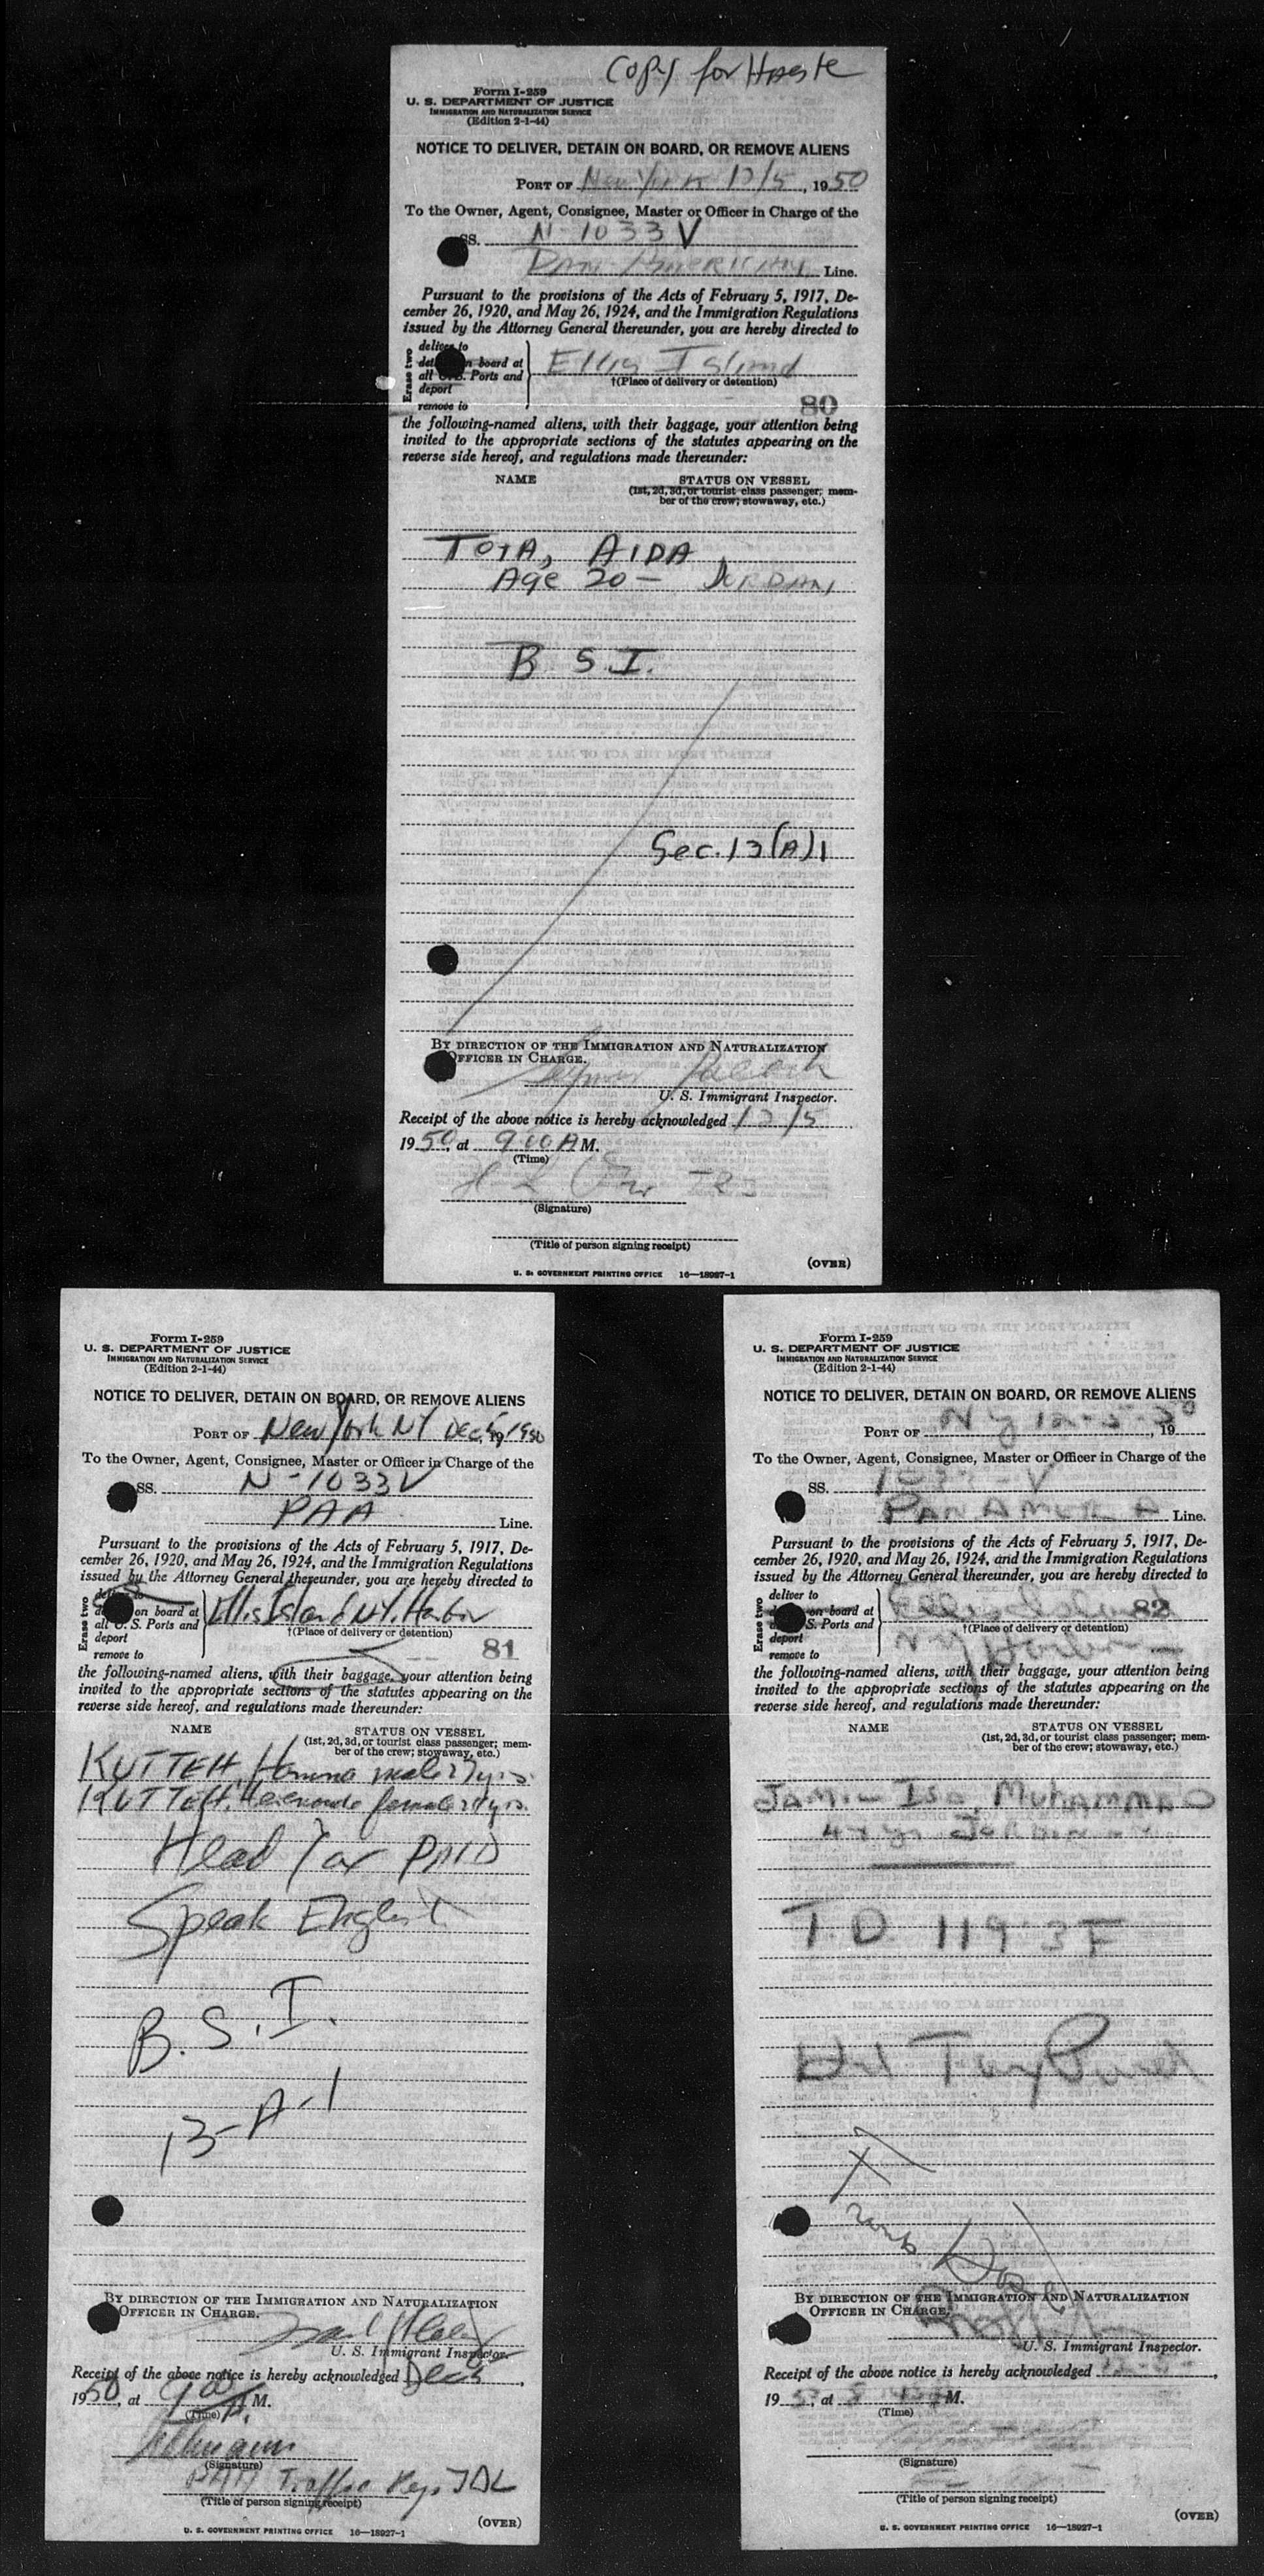 Copy for
Form I-259
U. S. DEPARTMENT OF JUSTICE
IMMIGRATION AND NATURALIZATION SERVICE
(Edition 2-1-44)
NOTICE TO DELIVER, DETAIN ON BOARD, OR REMOVE ALIENS
PORT OF New York 12/5, 1950
To the Owner, Agent, Consignee, Master or Officer in Charge of the
SS. N-1033V
Pan American Line.
Pursuant to the provisions of the Acts of February 5, 1917, De-
cember 26, 1920, and May 26, 1924, and the Immigration Regulations
issued by the Attorney General thereunder, you are hereby directed to
Erase two
deliver to
on board at
all U.S. Ports and
deport
remove to
Ellis Island
†(Place of delivery or detention)
80
the following-named aliens, with their baggage, your attention being
invited to the appropriate sections of the statutes appearing on the
reverse side hereof, and regulations made thereunder:
NAME STATUS ON VESSEL
(1st, 2d, 3d, or tourist class passenger; mem-
ber of the crew; stowaway, etc.)
TOTA, AIDA
Age 20 - JORDAN
B S.I.
Sec. 13(A)1
BY DIRECTION OF THE IMMIGRATION AND NATURALIZATION
OFFICER IN CHARGE.
U. S. Immigrant Inspector.
Receipt of the above notice is hereby acknowledged 12/5
1950, at 9:00 A M.
(Time)
(Signature)
(Title of person signing receipt)
(OVER)
U. S. GOVERNMENT PRINTING OFFICE 16—18927-1
Form I-259
U. S. DEPARTMENT OF JUSTICE
IMMIGRATION AND NATURALIZATION SERVICE
(Edition 2-1-44)
NOTICE TO DELIVER, DETAIN ON BOARD, OR REMOVE ALIENS
PORT OF New York NY Dec. 5, 19 1950
To the Owner, Agent, Consignee, Master or Officer in Charge of the
SS. N-1033V
PAA Line.
Pursuant to the provisions of the Acts of February 5, 1917, De-
cember 26, 1920, and May 26, 1924, and the Immigration Regulations
issued by the Attorney General thereunder, you are hereby directed to
Erase two
deliver to
on board at
all U. S. Ports and
deport
remove to
Ellis Island NY. Harbor
†(Place of delivery or detention)
81
the following-named aliens, with their baggage, your attention being
invited to the appropriate sections of the statutes appearing on the
reverse side hereof, and regulations made thereunder:
NAME STATUS ON VESSEL
(1st, 2d, 3d, or tourist class passenger; mem-
ber of the crew; stowaway, etc.)
KUTTEH, Hanna male 27 yrs.
KUTTEH, female yrs.
Head Tax PAID
Speak English
B.S.I.
13-A-1
BY DIRECTION OF THE IMMIGRATION AND NATURALIZATION
OFFICER IN CHARGE.
U. S. Immigrant Inspector
Receipt of the above notice is hereby acknowledged Dec 5,
1950, at 9:00 A. M.
(Time)
(Signature)
PAA Traffic Rep. IDL
(Title of person signing receipt)
(OVER)
U. S. GOVERNMENT PRINTING OFFICE 16—18927-1
Form I-259
U. S. DEPARTMENT OF JUSTICE
IMMIGRATION AND NATURALIZATION SERVICE
(Edition 2-1-44)
NOTICE TO DELIVER, DETAIN ON BOARD, OR REMOVE ALIENS
PORT OF N Y 12-5-50, 19
To the Owner, Agent, Consignee, Master or Officer in Charge of the
SS. 1033-V
Line.
Pursuant to the provisions of the Acts of February 5, 1917, De-
cember 26, 1920, and May 26, 1924, and the Immigration Regulations
issued by the Attorney General thereunder, you are hereby directed to
Erase two
deliver to
on board at
S. Ports and
deport
remove to
Ellis Island
82
†(Place of delivery or detention)
the following-named aliens, with their baggage, your attention being
invited to the appropriate sections of the statutes appearing on the
reverse side hereof, and regulations made thereunder:
NAME STATUS ON VESSEL
(1st, 2d, 3d, or tourist class passenger; mem-
ber of the crew; stowaway, etc.)
Isa, MUHAMMAD
T.D. 119-3F
Hd Tax Paid
BY DIRECTION OF THE IMMIGRATION AND NATURALIZATION
OFFICER IN CHARGE.
U. S. Immigrant Inspector.
Receipt of the above notice is hereby acknowledged
19 , at M.
(Time)
(Signature)
(Title of person signing receipt)
(OVER)
U. S. GOVERNMENT PRINTING OFFICE 16—18927-1